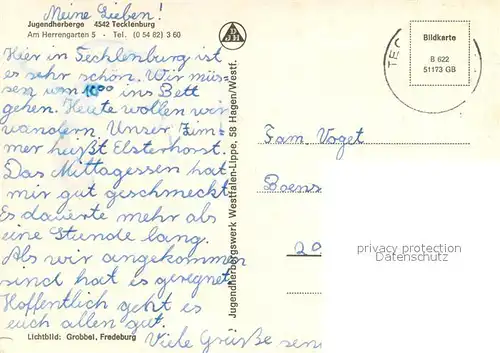 Meine Lieben!
Jugendherberge 4542 Tecklenburg
Am Herrengarten 5 - Tel. (0 54 82) 3 60
Hier in Tecklenburg ist
es sehr schön. Wir müs-
sen um 10⁰⁰ ins Bett
gehen. Heute wollen wir
wandern. Unser Zim-
mer heißt Elsterhorst.
Das Mittagessen hat
mir gut geschmeckt.
Es dauerte mehr als
eine Stunde lang.
Als wir angekommen
sind hat es geregnet.
Hoffentlich geht es
euch allen gut.
Viele Grüße sen
Lichtbild: Grobbel, Fredeburg
Jugendherbergswerk Westfalen-Lippe, 58 Hagen/Westf.
TEC
Bildkarte
B 622
51173 GB
Fam. Voget
Boens
20
privacy protection
Datenschutz